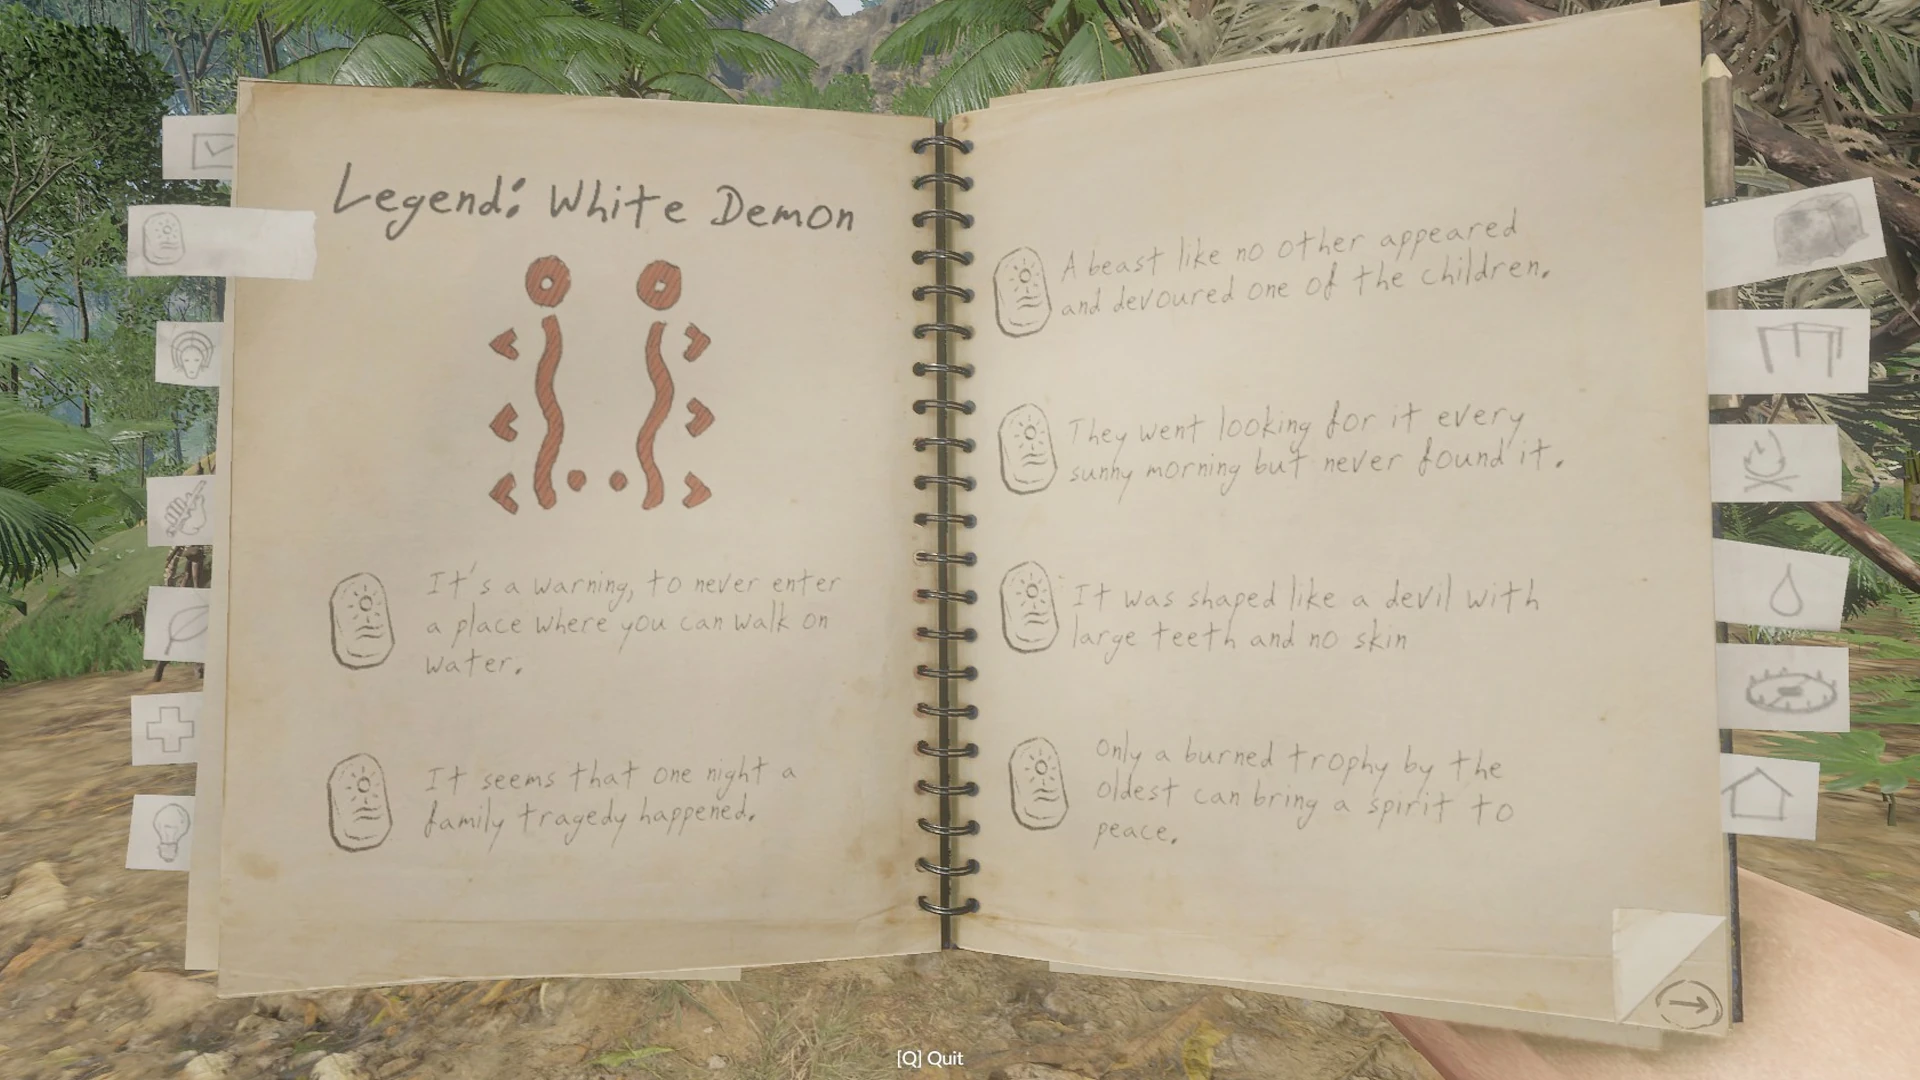 Legend: White Demon
It's a warning, to never enter
a place where you can walk on
water.
It seems that one night a
family tragedy happened.
A beast like no other appeared
and devoured one of the children.
They went looking for it every
sunny morning but never found it.
It was shaped like a devil with
large teeth and no skin
Only a burned trophy by the
oldest can bring a spirit to
peace.
[Q] Quit